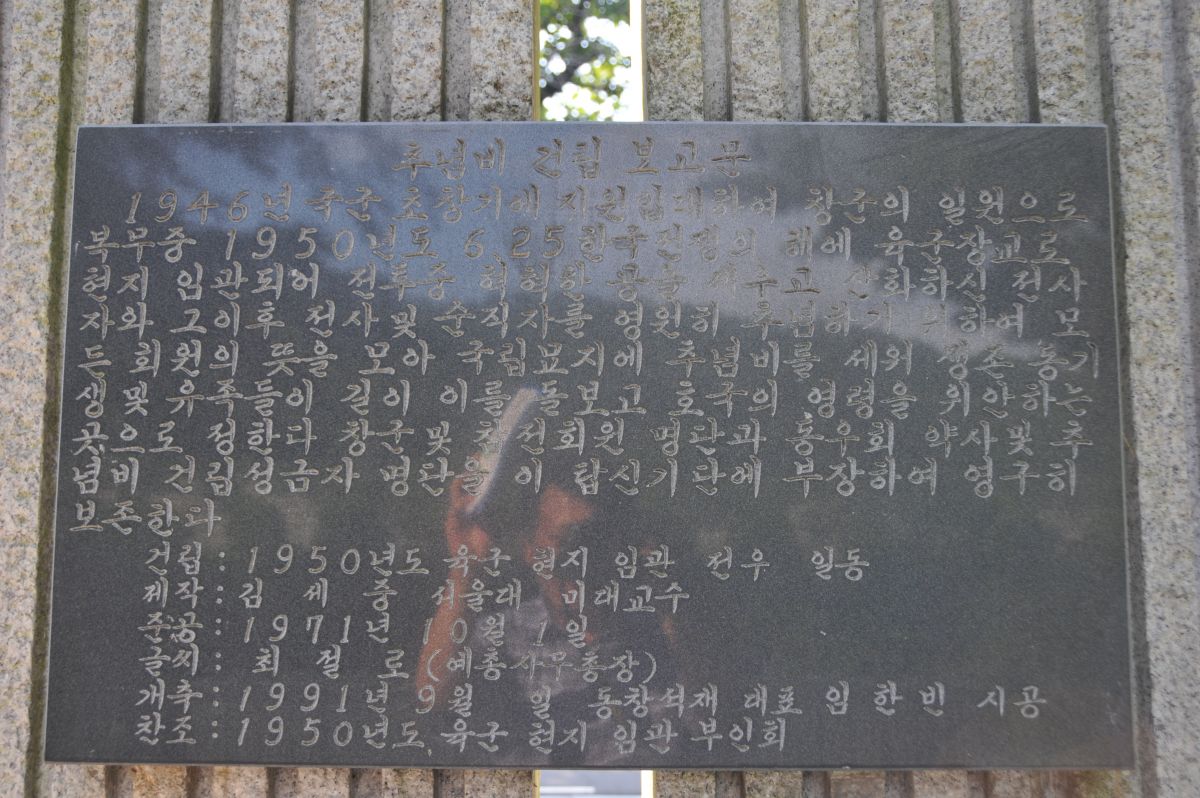 추념비 건립 보고문
1946년 주군 초창기에 지원입대하여 창군의 일원으로
복무중 1950년도 6.25한국전쟁의 해에 육군장교로
현지 임관되어 전투중 혁혁한 공을 세우고 산화하신 전사
자와 그이후 전사및 순직자를 영원히 추념하기 위하여 모
든 회원의 뜻을 모아 국립묘지에 추념비를 세워 생존동기
생 및 유족들이 길이 이를 돌보고 호국의 영령을 위안하는
곳으로 정한다 창군및 참전회원 명단과 통우회 약사및 추
념비 건립성금자 명단을 이 탑신기단에 부장하여 영구히
보존한다
건립 : 1950년도 육군 현지 임관 전우 일동
제작 : 김 세 중 서울대 미대교수
준공 : 1971년 10월 1일
글씨 : 최 절 로 (예총사무총장)
개추 : 1991년 9월 일 동창석재 대표 임 한 빈 시공
찬조 : 1950년도 육군 현지 임관 부인회